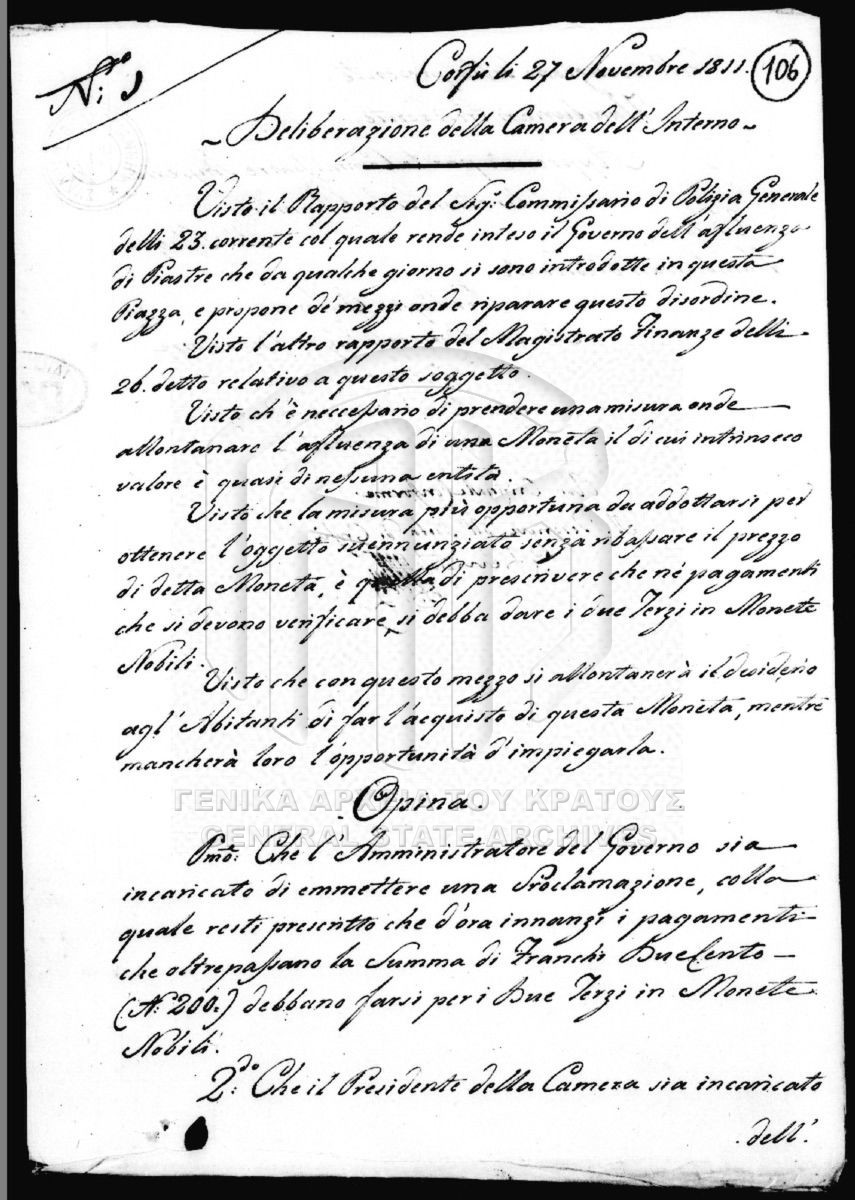 N:ro 1
Corfù li 27 Novembre 1811.
106
~ Deliberazione della Camera dell' Interno ~
Visto il Rapporto del Sigr: Commissario di Polizia Generale
delli 23. corrente col quale rende inteso il Governo dell' afluenza
di Piastre che da qualche giorno si sono introdotte in questa
Piazza, e propone de' mezzi onde riparare questo disordine.
Visto l'altro rapporto del Magistrato Finanze delli
26. detto relativo a questo soggetto.
Visto ch' è neccessario di prendere una misura onde
allontanare l'afluenza di una Moneta il di cui intrinseco
valore è quasi di nessuna entità.
Visto che la misura più opportuna da addottarsi per
ottenere l'oggetto sucennunziato senza ribassare il prezzo
di detta Moneta, è quella di prescrivere che né pagamenti
che si devono verificare, si debba dare i due Terzi in Monete
Nobili.
Visto che con questo mezzo si allontanerà il desiderio
agl' Abitanti di far l'acquisto di questa Moneta, mentre
mancherà loro l'opportunità d'impiegarla.
Opina.
ΓΕΝΙΚΑ ΑΡΧΕΙΑ ΤΟΥ ΚΡΑΤΟΥΣ
GENERAL STATE ARCHIVES
Pmo: Che l' Amministratore del Governo sia
incaricato di emmettere una Proclamazione, colla
quale resti prescritto che d'ora innanzi i pagamenti
che oltrepassano la Summa di Franchi DueCento —
(N. 200.) debbano farsi per i Due Terzi in Monete
Nobili.
2:do Che il Presidente della Camera sia incaricato
dell'